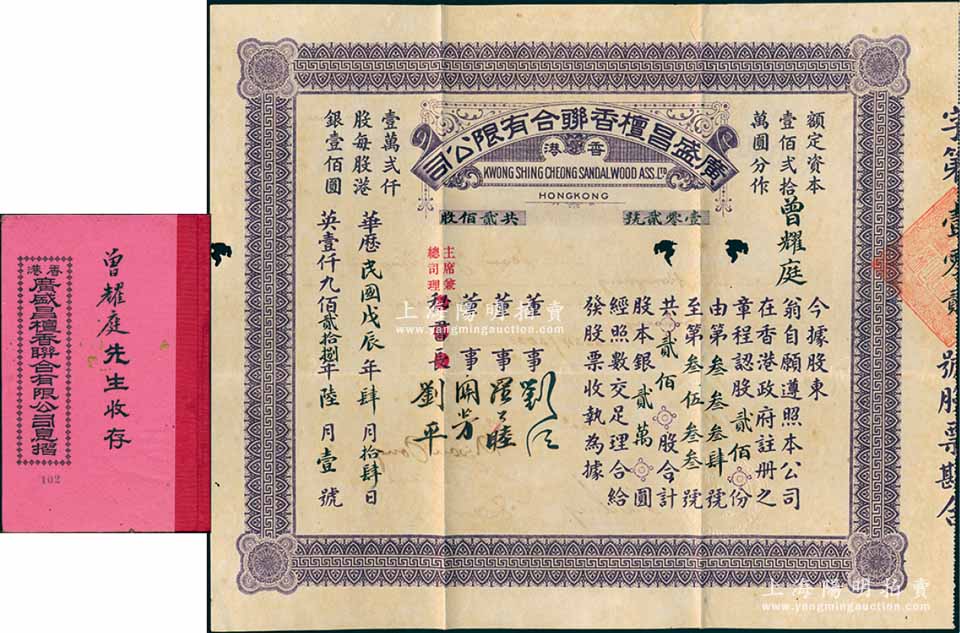 廣盛昌檀香聯合有限公司
香港
KWONG SHING CHEONG SANDALWOOD ASS. LTD
HONGKONG
壹零貳號
共貳佰股
額定資本
壹佰貳拾
萬圓分作
壹萬弍仟
股每股港
銀壹佰圓
曾耀庭
今據股東
翁自願遵照本公司
在香港政府註册之
章程認股貳佰份
由第叁叁叁肆號
至第叁伍叁叁號
共貳佰股合計
股本銀貳萬圓
經照數交足理合給
發股票收執為據
董事
董事
董事
主席兼
總司理
劉平
華歷民國戊辰年肆月拾肆日
英壹仟九佰貳拾捌年陸月壹號
字第壹零貳號股票勘合
曾耀庭先生收存
香港
廣盛昌檀香聯合有限公司息摺
102
上海陽明拍賣
www.yangmingauction.com
上海陽明拍賣
www.yangmingauction.com